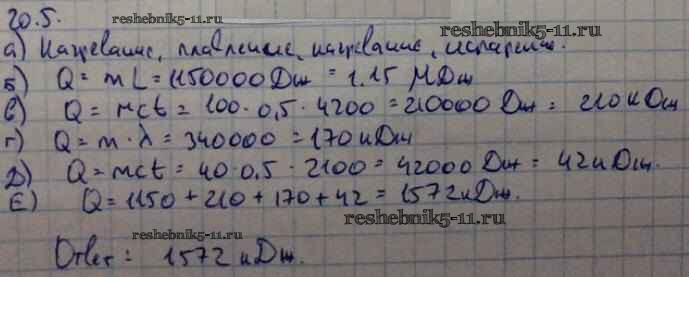 20.5. reshebnik5-11.ru
а) Нагревание, плавление, нагревание, испарение. reshebnik5-11.ru
б) Q = mL = 1150000 Дж = 1.15 МДж
в) Q = mct = 100·0,5·4200 = 210000 Дж = 210 кДж
г) Q = m·λ = 340000 = 170 кДж
д) Q = mct = 40·0.5·2100 = 42000 Дж = 42 кДж.
Е) Q = 1150 + 210 + 170 + 42 = 1572 кДж.
reshebnik5-11.ru
reshebnik5-11.ru
Ответ: 1572 кДж.